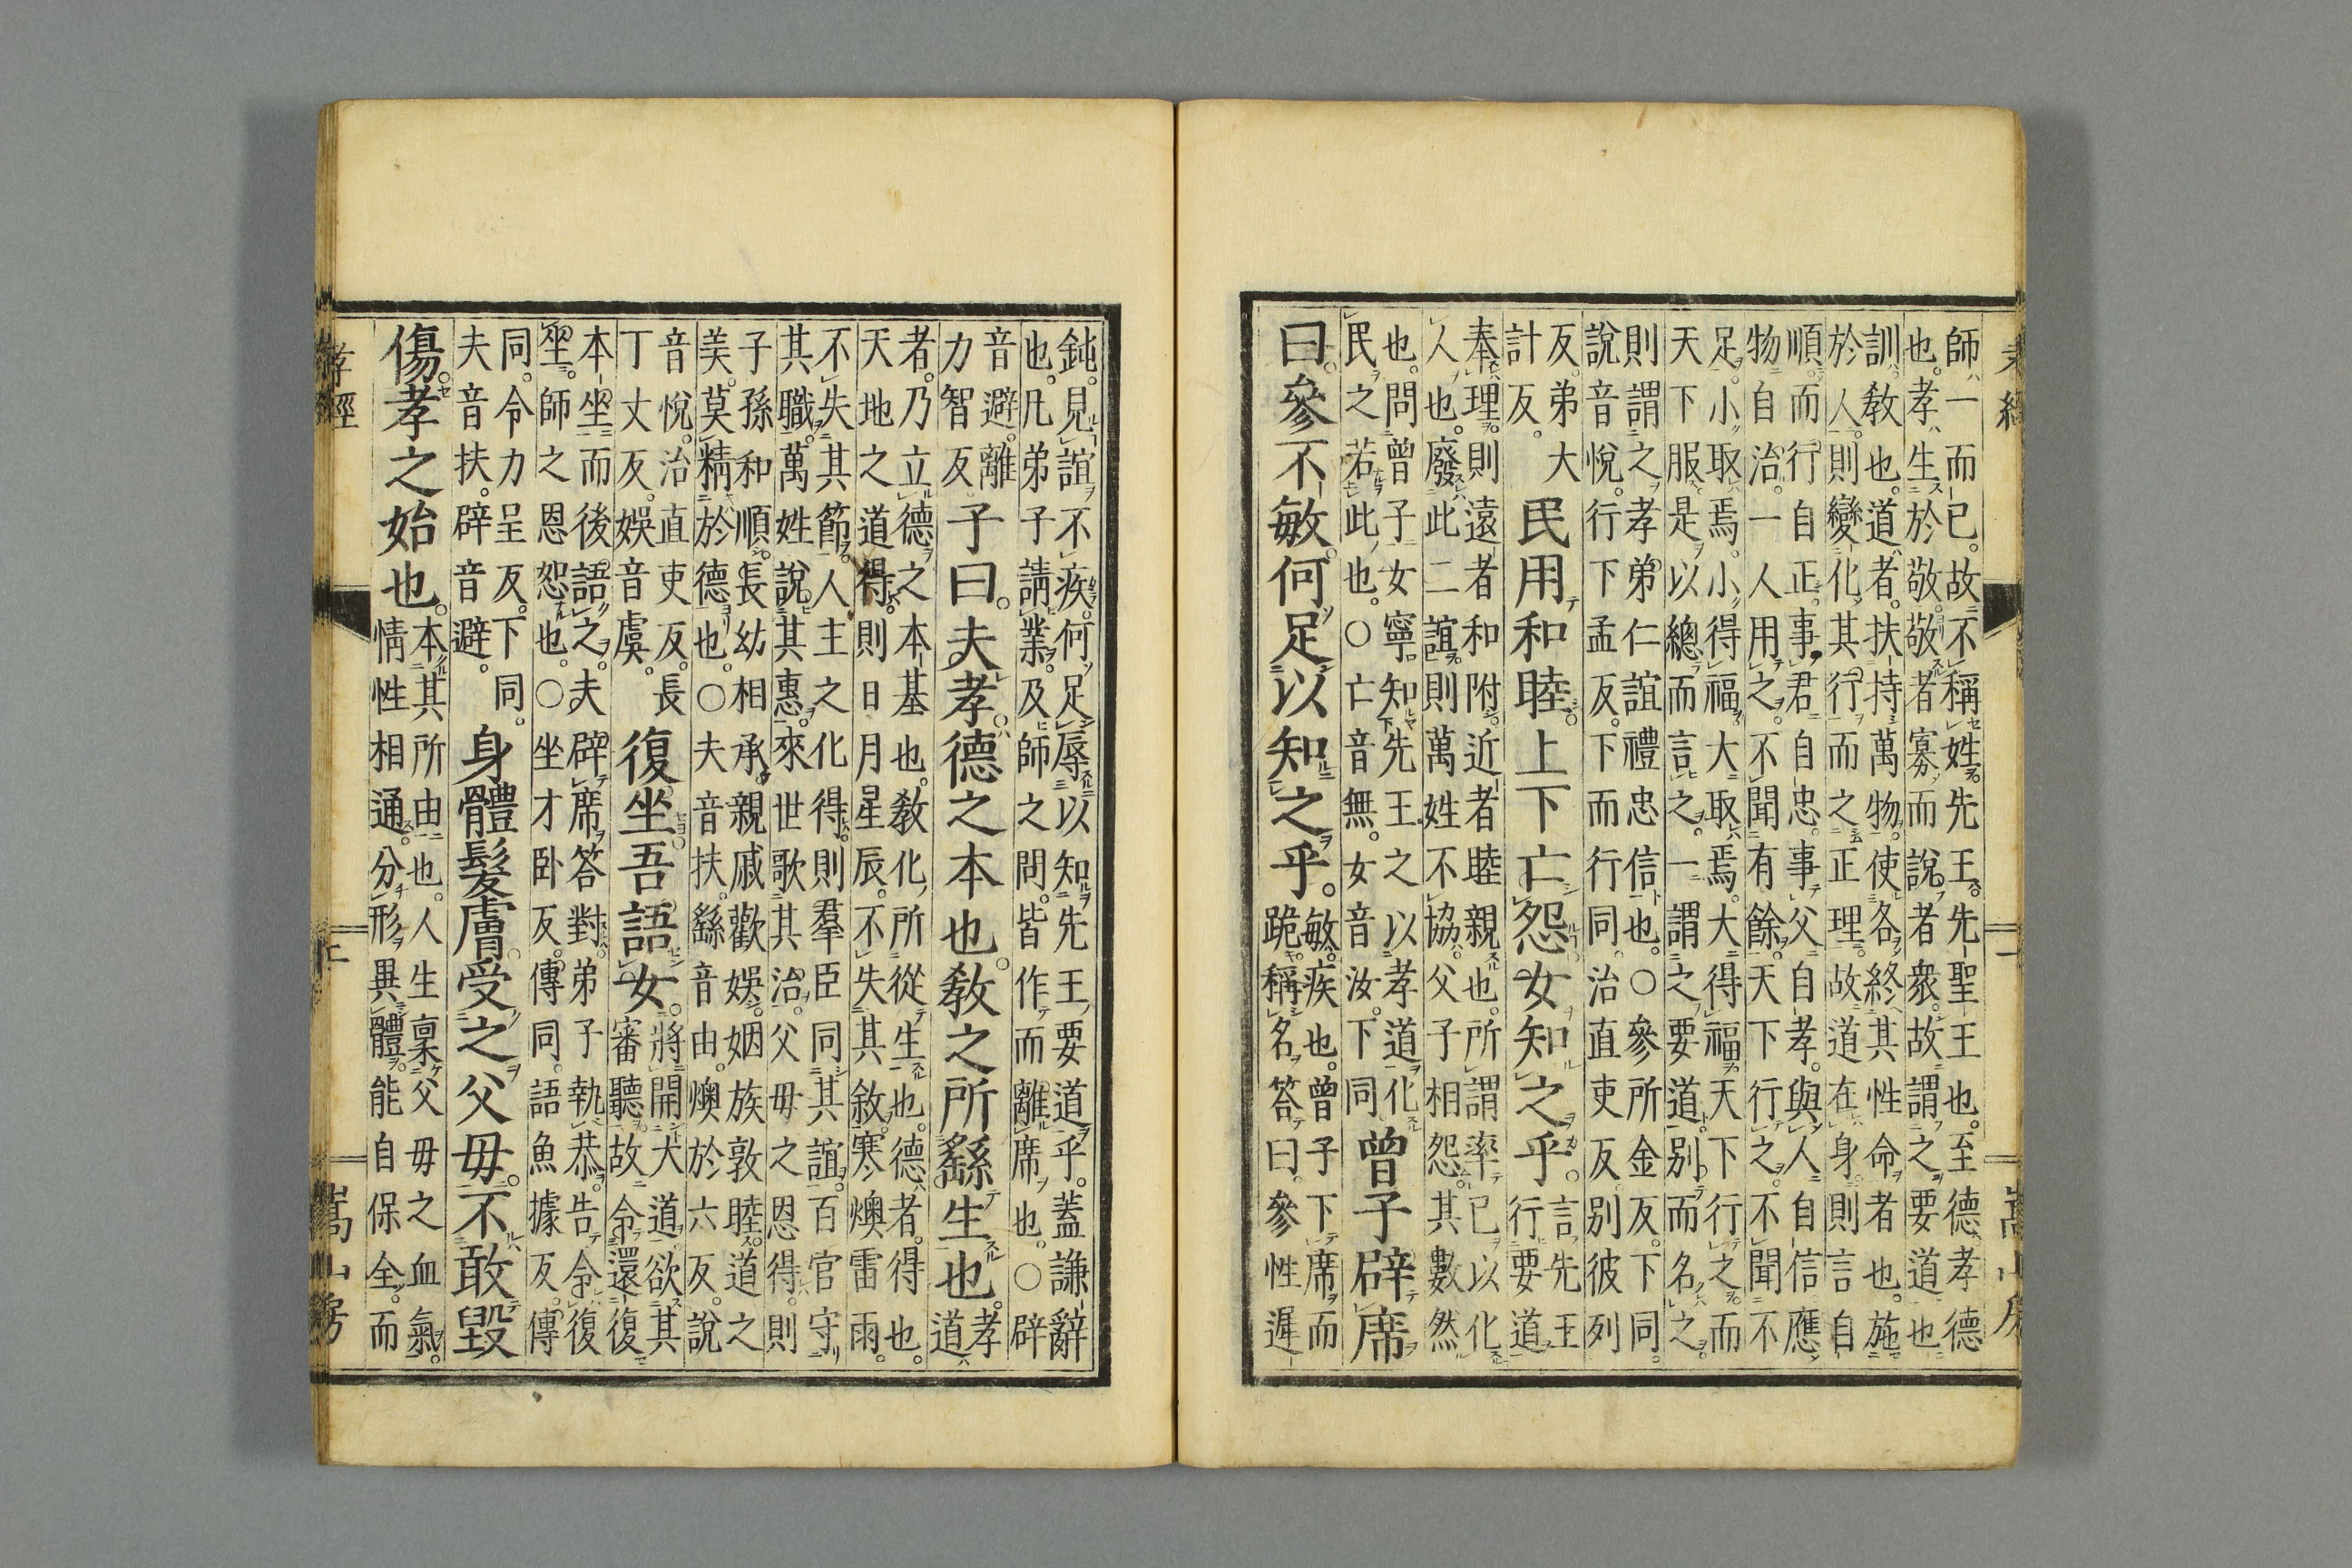 師一而已。故不稱姓。先王。先聖王也。至德。孝德
也。孝生於敬。敬者寡而說者衆。故謂之要道也
訓。教也。道者。扶持萬物。使各終其性命者也。施
於人。則變化其行。而之正理。故道在身。則言自
順。而行自正。事君自忠。事父自孝。與人自信。應
物自治。一人用之。不聞有餘。天下行之。不聞不
足。小取焉。小得福。大取焉。大得福。天下行之。而
天下服。是以總而言之。一謂之要道。別而名之。
則謂之孝弟仁誼禮忠信也。○參所金反。下同。
說音悅。行下孟反。下而行同。治直吏反。別彼列
反。弟大
計反。
民用和睦。上下亡怨。女知之乎。
言先王
行要道
奉理。則遠者和附。近者睦親也。所謂率已以化
人也。廢此二誼。則萬姓不協。父子相怨。其數然
也。問曾子女寧。知先王之以孝道化
民之若此也。○亡音無。女音汝。下同
曾子辟席
曰。參不敏。何足以知之乎。
敏。疾也。曾子下席而
跪。稱名。答曰。參性遲
鈍。見誼不疾。何足辱以知先王要道乎。蓋謙辭
也。凡弟子請業。及師之問。皆作而離席也。○辟
音避。離
力智反
子曰。夫孝。德之本也。教之所繇生也。
孝
道
者。乃立德之本基也。教化所從生也。德者。得也。
天地之道得。則日月星辰。不失其敘。寒燠雷雨。
不失其節。人主之化得。則羣臣同其誼。百官守
其職。萬姓說其惠。來世歌其治。父母之恩得。則
子孫和順。長幼相承。親戚歡娛。姻族敦睦。道之
美。莫精於德也。○夫音扶。繇音由。燠於六反。說
音悅。治直吏反。長
丁丈反。娛音虞。
復坐吾語女。
將開大道。欲其
審聽。故令還復
本坐而後語之。夫辟席答對。弟子執恭。告令復
坐。師之恩恕也。○坐才卧反。傳同。語魚據反。傳
同。令力呈反。下同。
夫音扶。辟音避。
身體髮膚。受之父母。不敢毀
傷。孝之始也。
本其所由也。人生稟父母之血氣。
情性相通。分形異體。能自保全。而
孝經
三
嵩山房